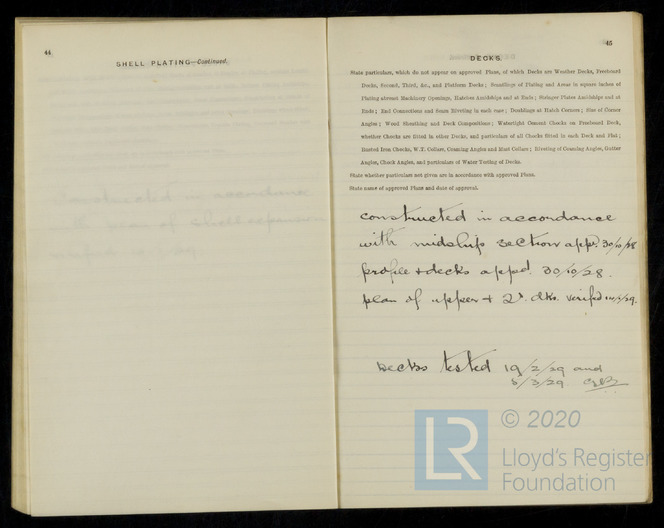 44
SHELL PLATING—Continued.
45
DECKS.
State particulars, which do not appear on approved Plans, of which Decks are Weather Decks, Freeboard
Decks, Second, Third, &c., and Platform Decks; Scantlings of Plating and Areas in square inches of
Plating abreast Machinery Openings, Hatches Amidships and at Ends; Stringer Plates Amidships and at
Ends; End Connections and Seam Riveting in each case; Doublings at Hatch Corners; Size of Corner
Angles; Wood Sheathing and Deck Compositions; Watertight Cement Chocks on Freeboard Deck,
whether Chocks are fitted in other Decks, and particulars of all Chocks fitted in each Deck and Flat;
Busted Iron Chocks, W.T. Collars, Coaming Angles and Mast Collars; Riveting of Coaming Angles, Gutter
Angles, Chock Angles, and particulars of Water Testing of Decks.
State whether particulars not given are in accordance with approved Plans.
State name of approved Plans and date of approval.
constructed in accordance
with midship section appd. 30/10/28
profile + decks appd. 30/10/28.
plan of upper + 2d. dks. verified /29.
Decks tested 19/2/29 and
5/3/29
© 2020
LR
Lloyd's Register
Foundation